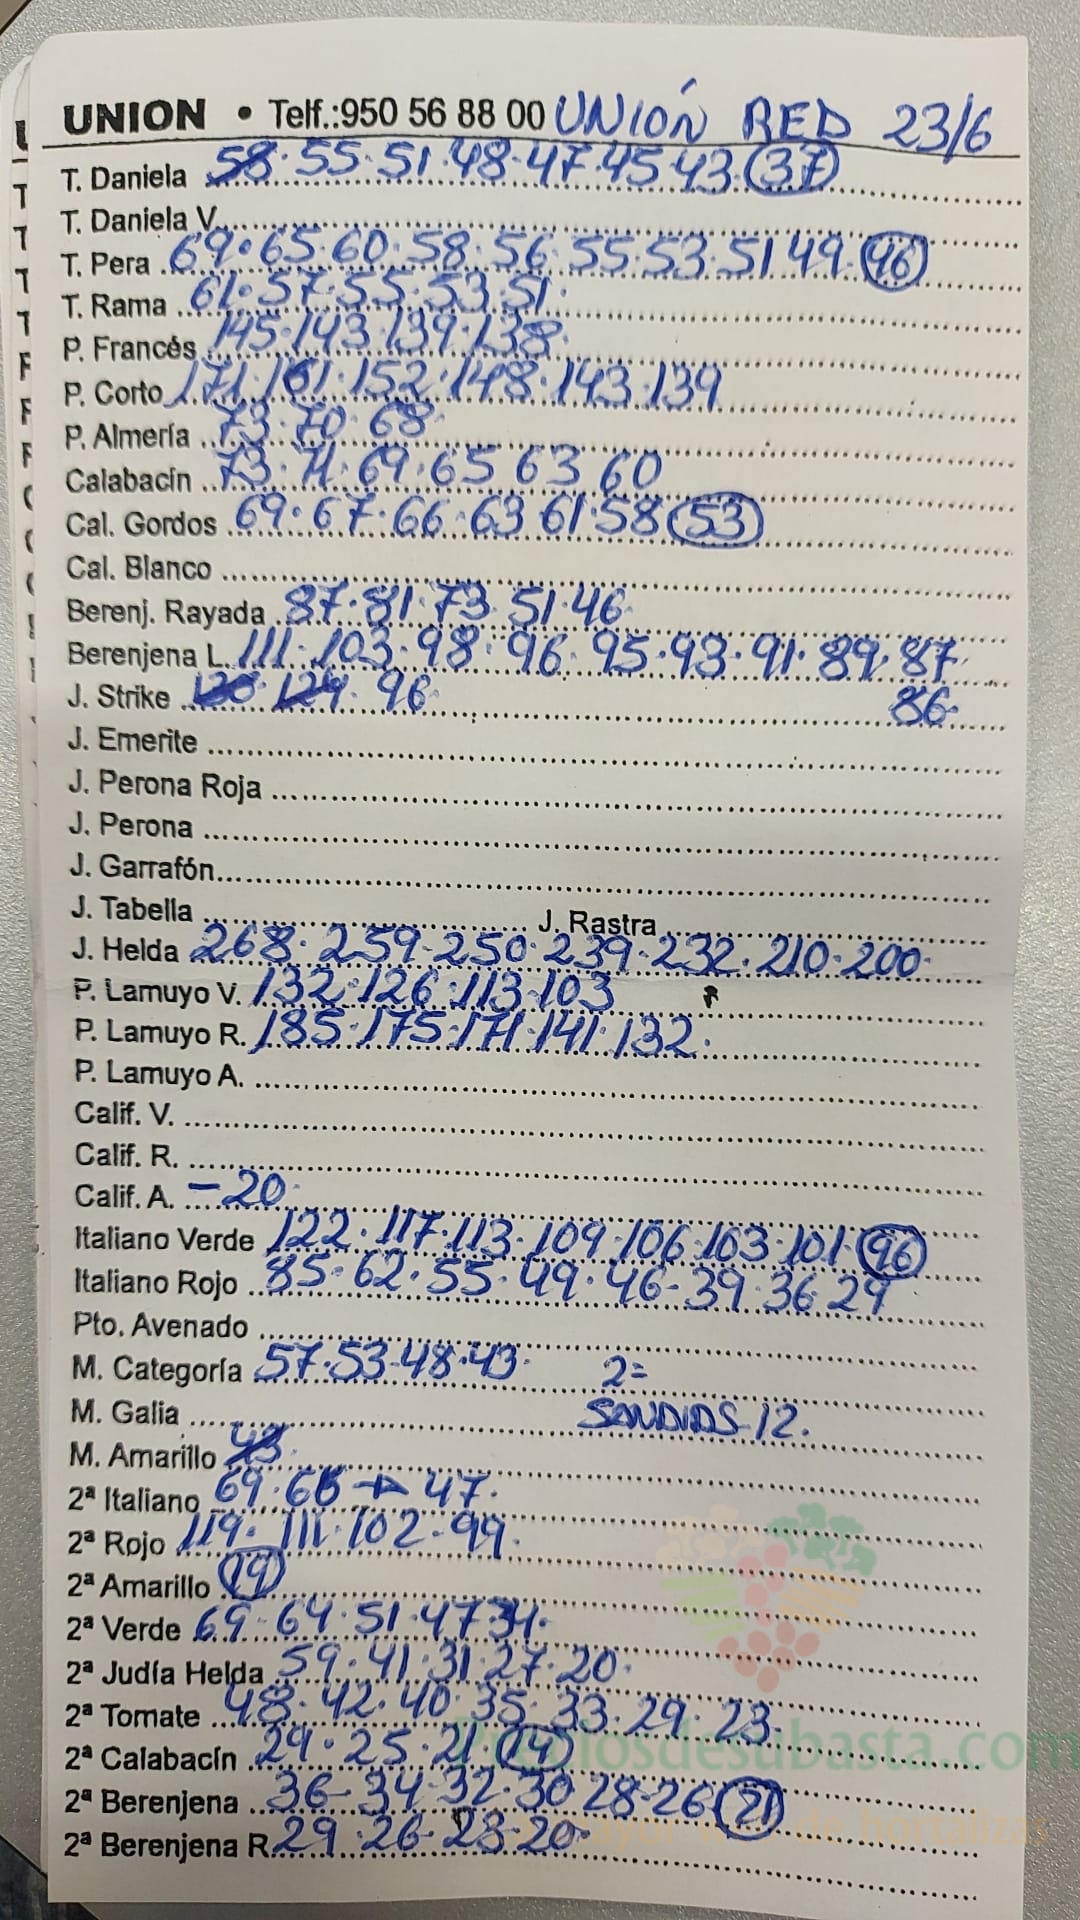 UNION • Telf.:950 56 88 00 UNIÓN RED 23/6
T. Daniela 58·55·51·48·47·45·43·37
T. Daniela V.
T. Pera 69·65·60·58·56·55·53·51 49·46
T. Rama 61·57·55·53·51·
P. Francés 145·143·139·138·
P. Corto 171·161·152·148·143·139
P. Almería 73·70·68·
Calabacín 73·71·69·65 63 60
Cal. Gordos 69·67·66·63 61·58 53
Cal. Blanco
Berenj. Rayada 87·81·73·51·46·
Berenjena L. 111·103·98·96·95·93·91·89·87·
86·
J. Strike 96·
J. Emerite
J. Perona Roja
J. Perona
J. Garrafón
J. Tabella J. Rastra
J. Helda 268·259-250·239·232·210·200·
P. Lamuyo V. 132·126·113·103
P. Lamuyo R. 185·175·171·141·132·
P. Lamuyo A.
Calif. V.
Calif. R.
Calif. A. -20·
Italiano Verde 122·117·113·109·106·103·101·96
Italiano Rojo 85·62·55·49·46-39·36·29
Pto. Avenado
M. Categoría 57·53·48·43· 2=
M. Galia SANDIAS-12.
M. Amarillo 43
2ª Italiano 69·66 → 47·
2ª Rojo 119·111·102·99·
2ª Amarillo 19
2ª Verde 69-64·51·47·34·
2ª Judía Helda 59·41·31·27·20·
2ª Tomate 48·42·40·35·33·29·23·
2ª Calabacín 29·25·21·19
2ª Berenjena 36-34-32·30 28-26 21
2ª Berenjena R. 29·26-23-20·
Preciosdesubasta.com
mayor web de hortalizas